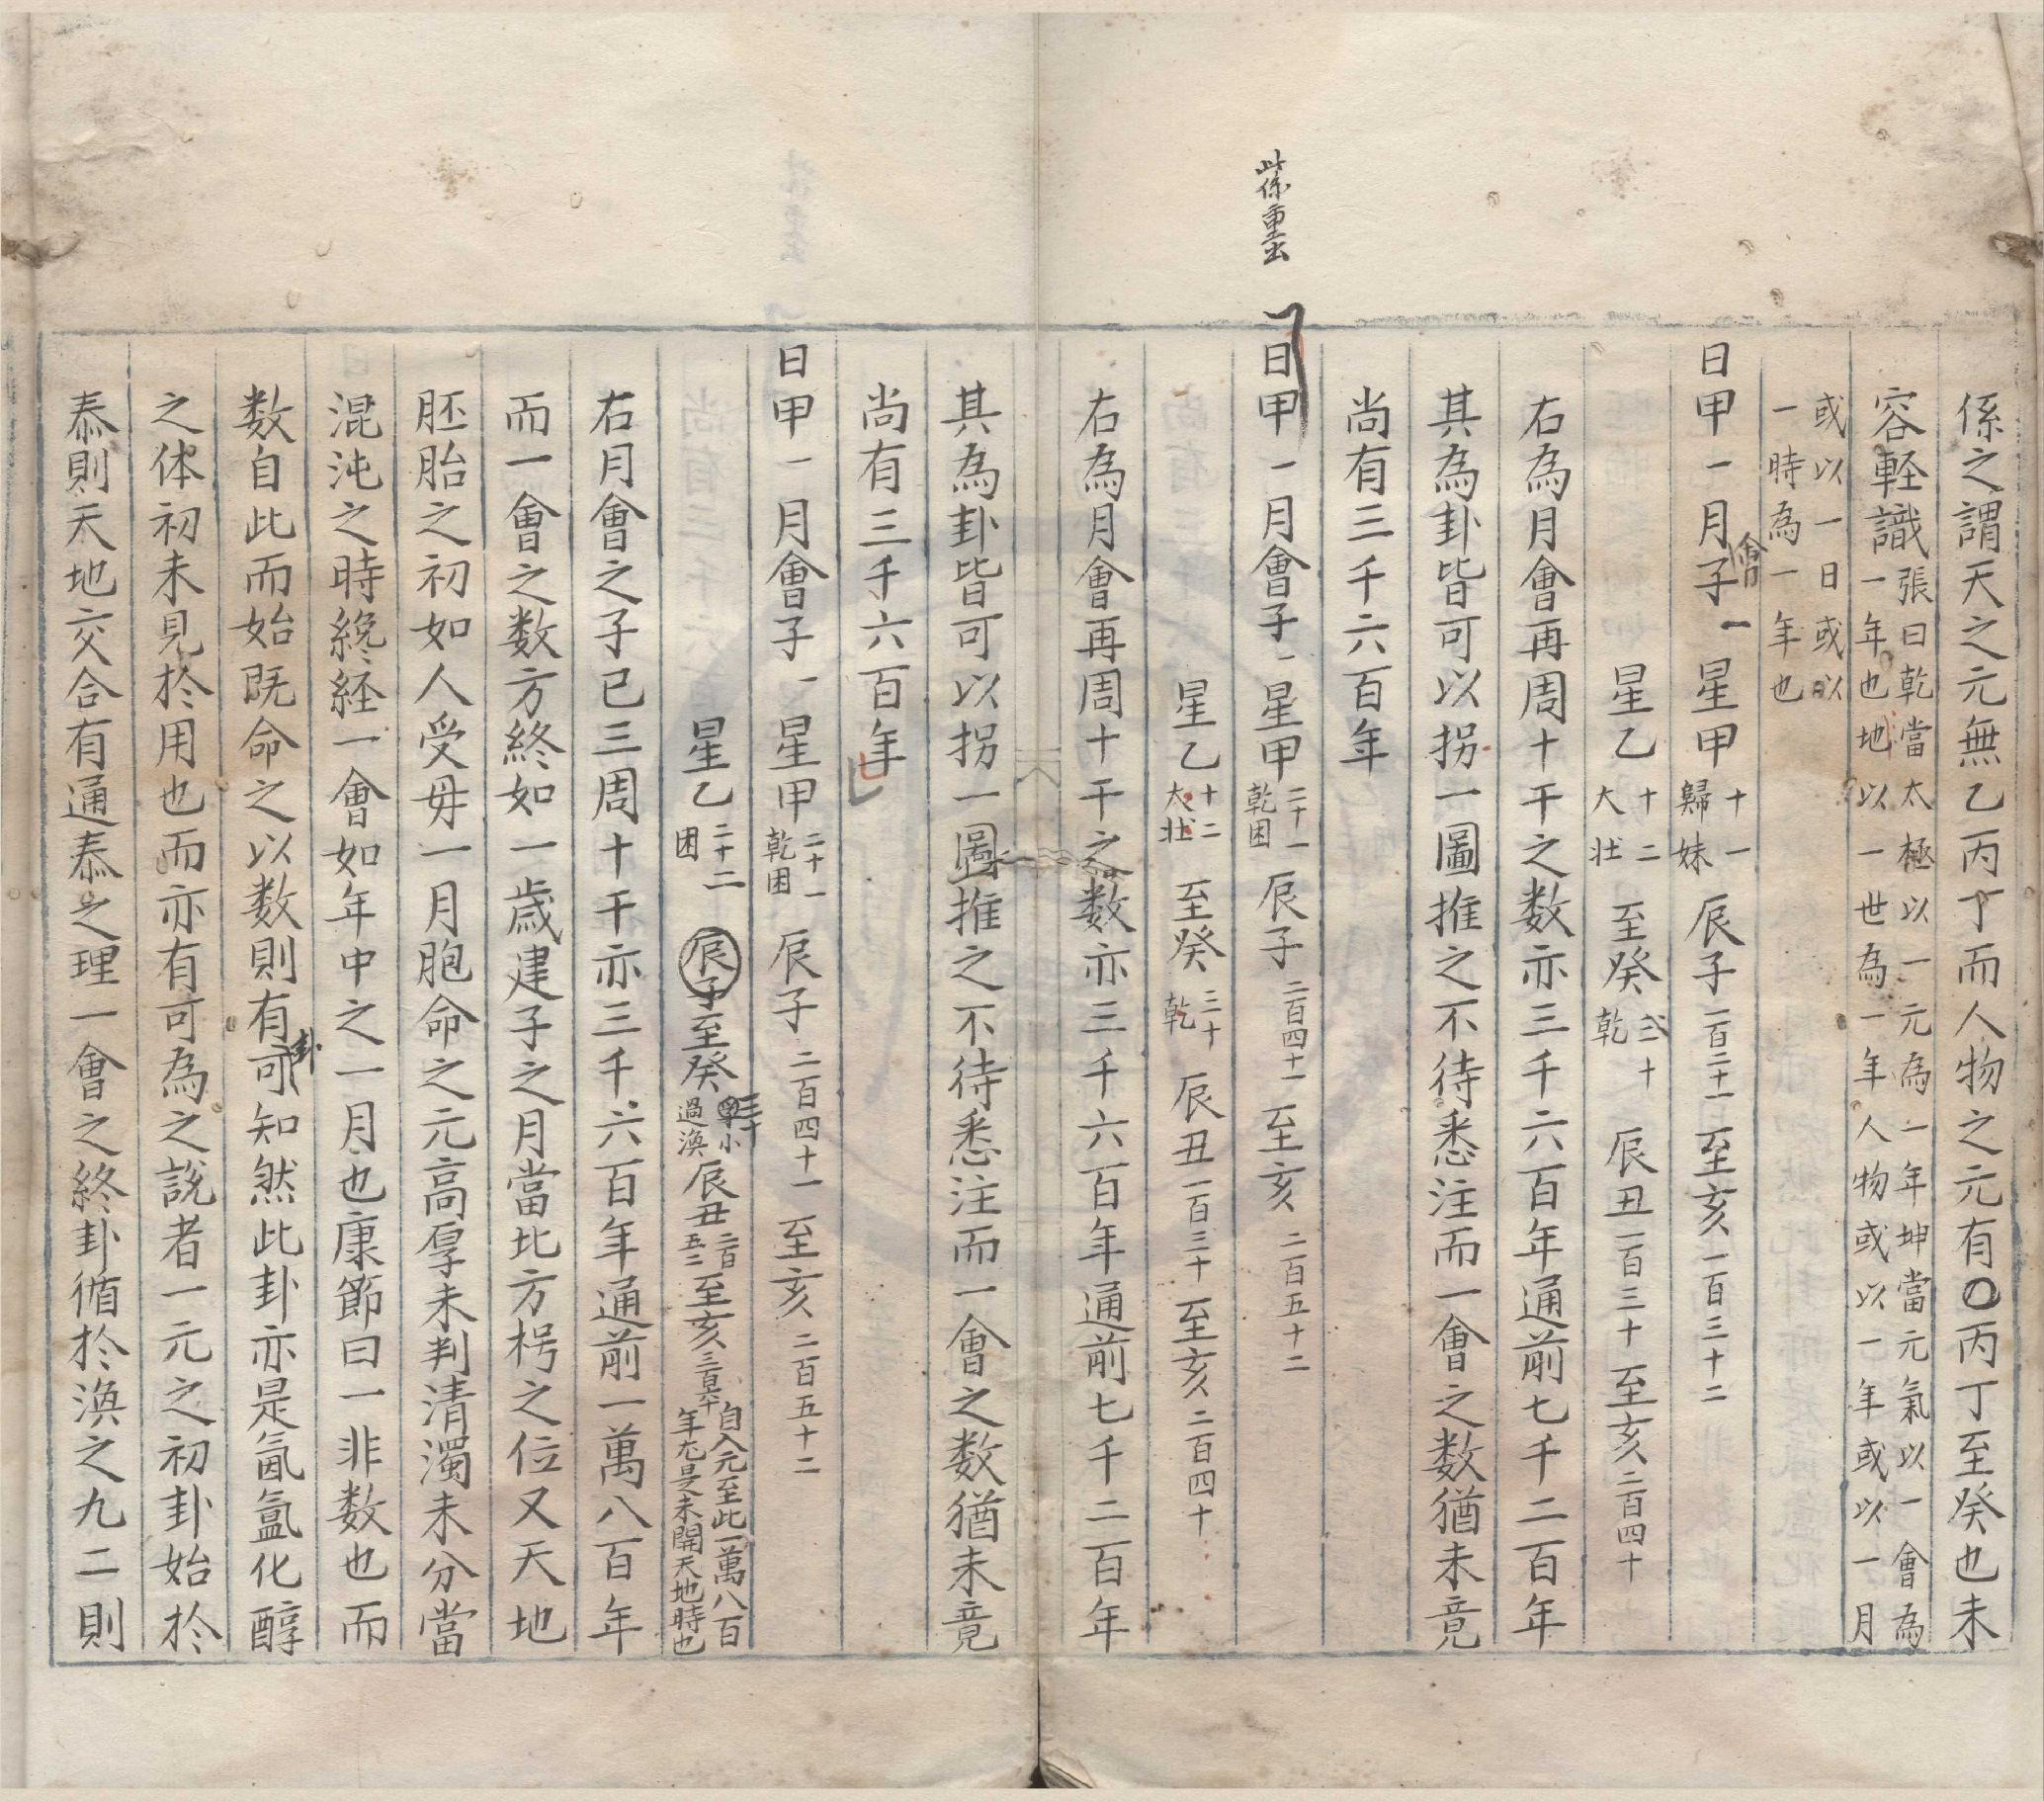 係之謂天之元無乙丙丁而人物之元有〇丙丁至癸也未
容軽識張曰乾當太極以一元為一年坤當元氣以一會為
一年也地以一世為一年人物或以一年或以一月
或以一日或以
一時為一年也
日甲一月會子一星甲十一歸妹辰子一百二十一至亥一百三十二
星乙十二大壯至癸二十乾辰丑一百三十至亥二百四十
右為月會再周十干之数亦三千六百年通前七千二百年
其為卦皆可以拐一圖推之不待悉注而一會之数猶未竟
尚有三千六百年
此係重出
日甲一月會子一星甲二十一乾困辰子二百四十一至亥二百五十二
星乙十二大壯至癸三十乾辰丑一百三十至亥二百四十
右為月會再周十干之数亦三千六百年通前七千二百年
其為卦皆可以拐一圖推之不待悉注而一會之数猶未竟
尚有三千六百年
日甲一月會子一星甲二十一乾困辰子二百四十一至亥二百五十二
星乙二十二困辰子至癸三十小過渙辰丑二百五二至亥三百六十自入元至此一萬八百年尢是未開天地時也
右月會之子已三周十干亦三千六百年通前一萬八百年
而一會之数方終如一歲建子之月當比方枵之位又天地
胚胎之初如人受毋一月胞命之元高厚未判清濁未分當
混沌之時纔経一會如年中之一月也康節曰一非数也而
数自此而始既命之以数則有卦可知然此卦亦是氤氳化醇
之体初未見扵用也而亦有可為之説者一元之初卦始扵
泰則天地交合有通泰之理一會之終卦循扵渙之九二則